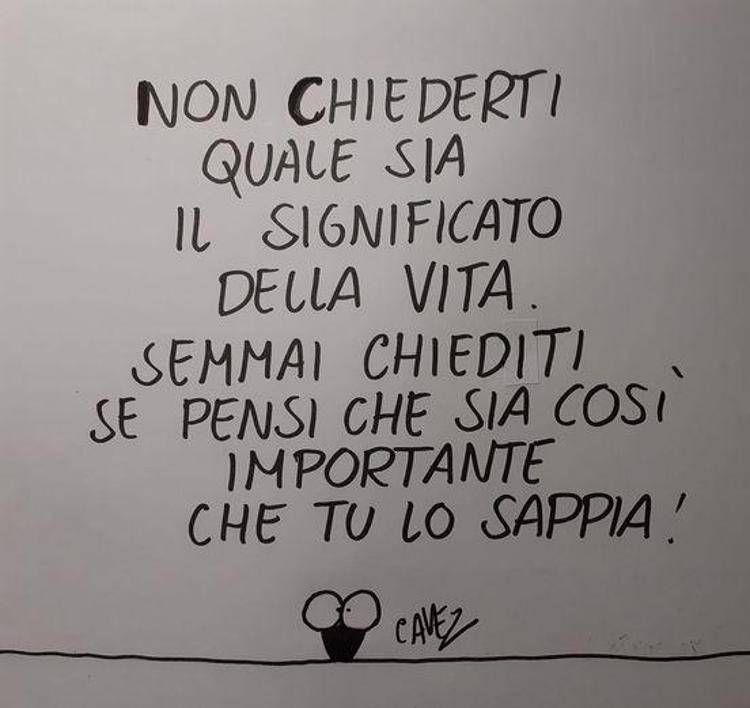 NON CHIEDERTI
QUALE SIA
IL SIGNIFICATO
DELLA VITA.
SEMMAI CHIEDITI
SE PENSI CHE SIA COSÌ
IMPORTANTE
CHE TU LO SAPPIA!
CAVEZ